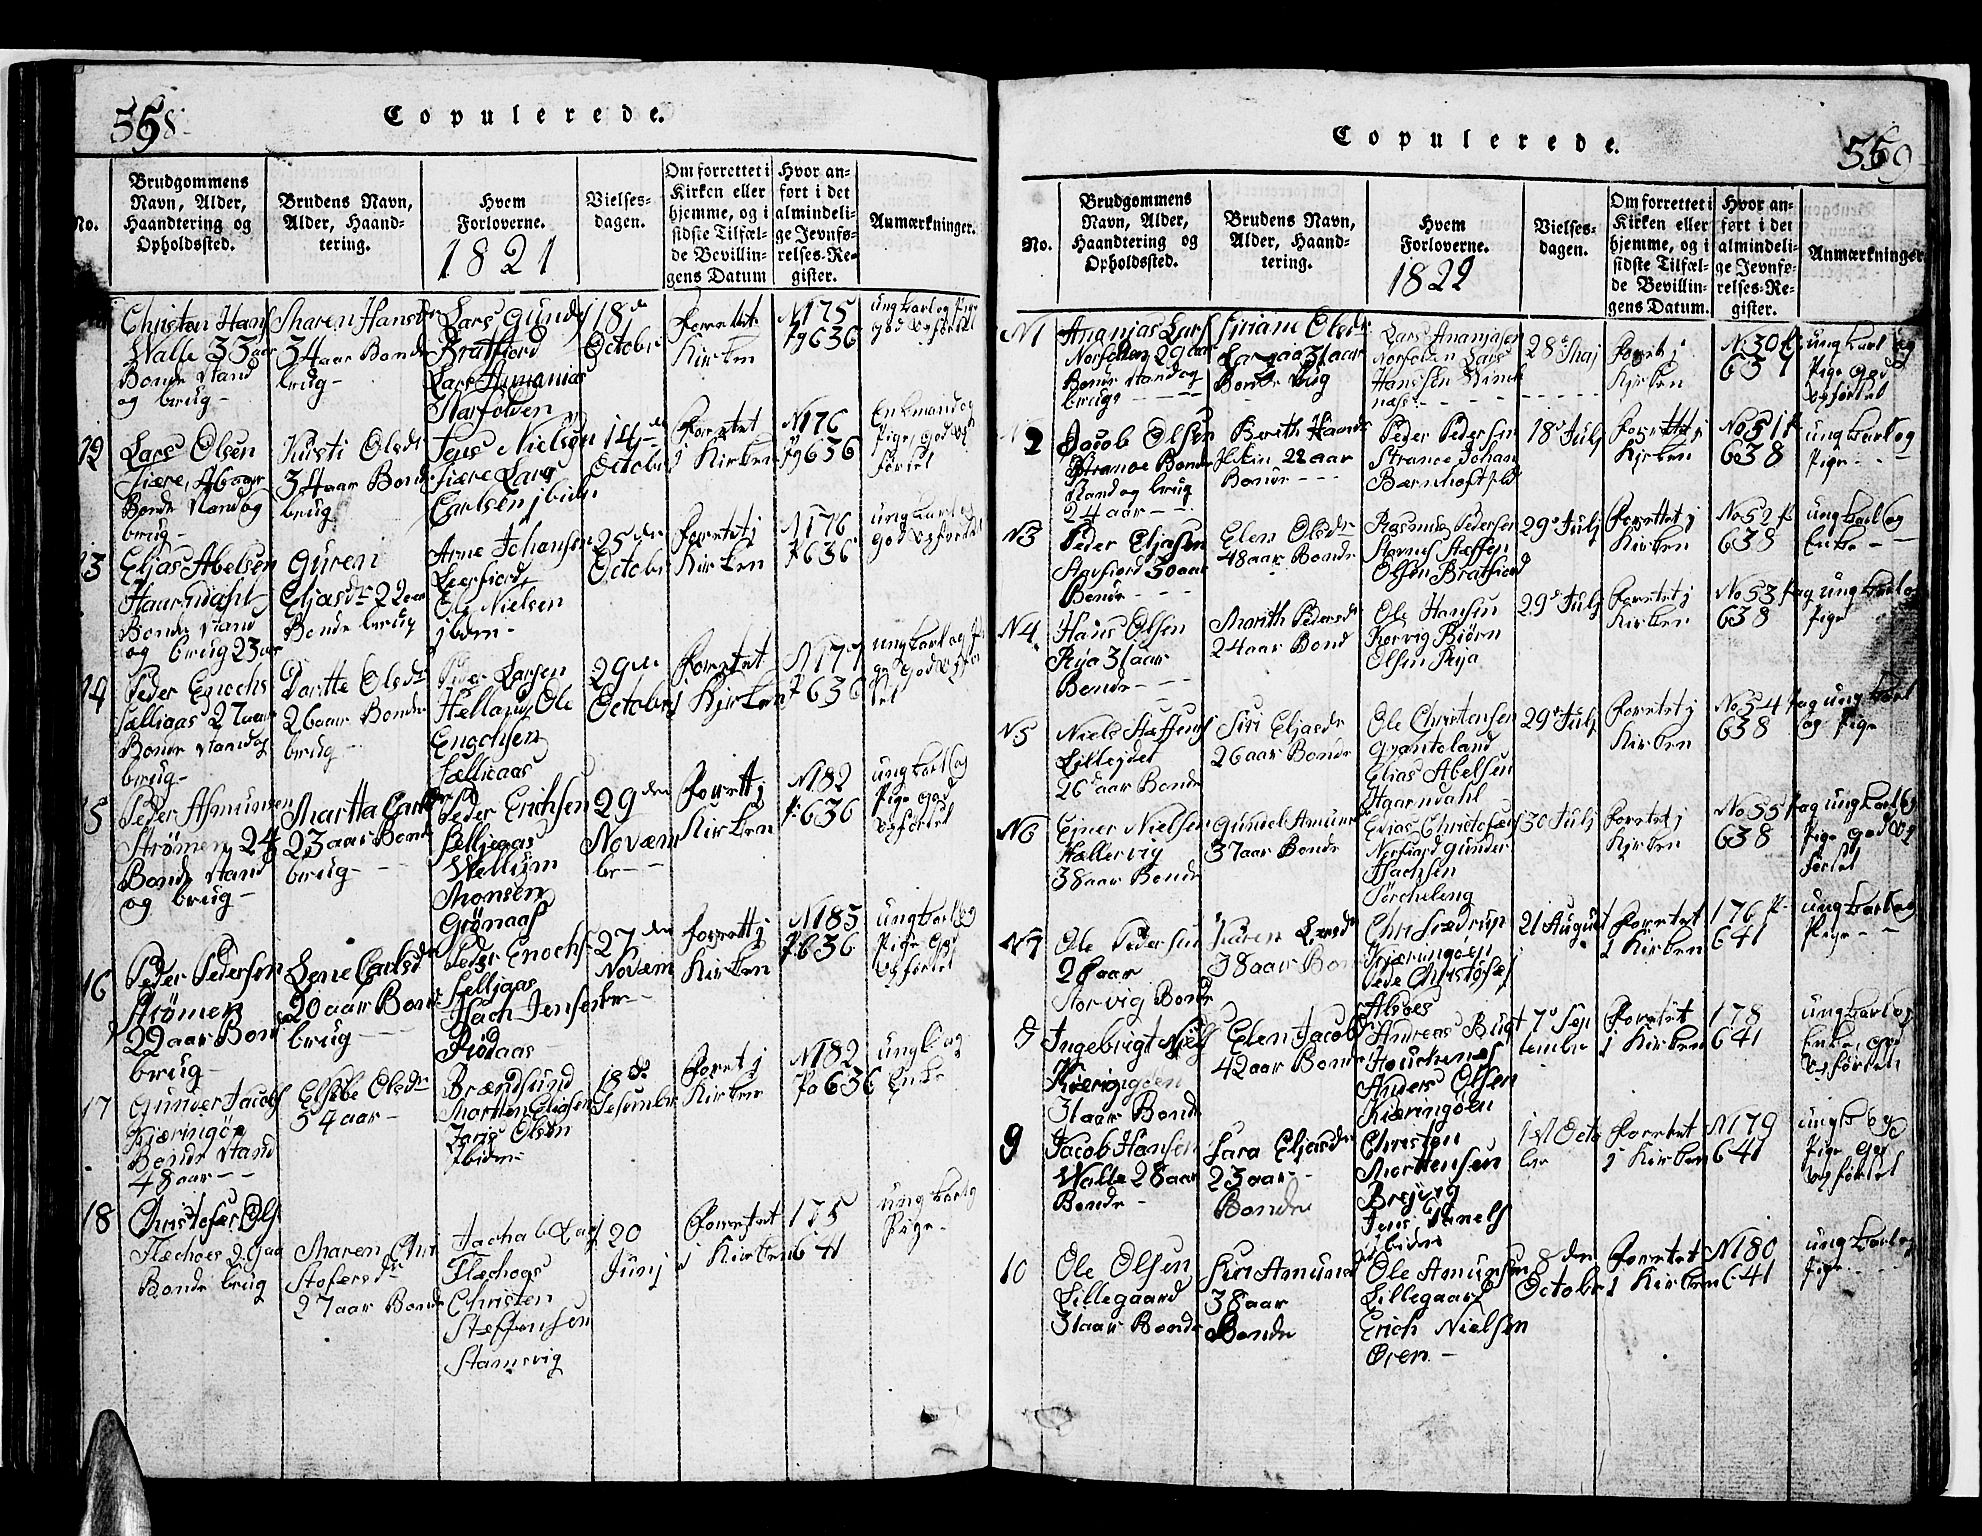 558
Copulerede.
No.
Brudgommens
Navn, Alder,
Haandtering og
Opholdssted.
Brudens Navn,
Alder, Haand-
tering.
Hvem
Forloverne.
1821
Vielses-
dagen.
Om forrettet i
Kirken eller
hjemme, og i
sidste Tilfæl-
de Bevillin-
gens Datum
Hvor an-
ført i det
almindeli-
ge Jevnfø-
relses-Re-
gister.
Anmærkninger.
Christen Hans
Walle 33 aar
Bonde stand
og brug -
Maren Hans
34 aar Bonde
brug -
Lars Gunder
Bratfiord
Lars Ananias
Narfolden
18de
October
Forrettet
Kirken
N175
Pg 636
ung karl og Pige
god opførsel
12
Lars Olsen
Siære, 46 aar
Bonde stand og
brug -
Kirsti Olsdr
34 aar Bonde
brug
Jens Nielsen
Siære Lars
Carlsen ibidn
14de
October
Forrettet
i Kirken
N176
Pg 636
Enkemand og
Pige, god op
førsel
13
Elias Abelsen
Haarndahl
Bonde stand
og brug 23 aar
Guren
Eliasdr 22 aar
Bonde brug
Arne Johansen
Leerfiord
Ole Nielsen
ibdm -
25de
October
Forrettet i
Kirken
N176
P 636
ung karl og
god opførsel
14
Peder Enochs
Sælligaas 27 aar
Bonde stand og
brug -
Doritte Olsdr
26 aar Bonde
brug -
Peder Larsen
Helland Ole
Engchsen
Sælligaas
29de
October
Forrettet
i Kirken
N177
P 636
ung karl og Pi
ge god opfør
sel
15
Peder Asmunsen
Strømen 24
Bonde stand
og brug -
Martha Carls
23 aar Bonde
brug -
Peder Erichsen
Selljgaas
Wellum
Thomsen
Grønaas
29den
Novæm
br -
Forrett i
Kirken
N182
P 636
ung karl og
Pige god
opførsel
16
Peder Pedersen
Strømen
29 aar Bonde
brug -
Lene Carlsdr
20 aar Bonde
brug -
Peder Enochs
Selljgaas
Hach Jensen
Rødaas
27de
Novæm
br -
Forrett i
Kirken
N183
P 636
ung karl og
Pige god
opførsel
17
Gunder Jacobs
Kiæringøe
Bonde stand
48 aar - -
Elsebe Olsdr
54 aar -
Brændsund
Marthen Eliasen
Zarjs Olsen
Ibiden -
18de
Desember
Forret i
Kirken
N182
Pa 636
ung k og
Enke
18
Christofær Ols
Flæchoes 29 aar
Bonde brug
Maren Chri
stofersdr
27 aar Bonde
Jachab Lars
Flæchoes
Christen
Steffensen
Stamsvig
20
Junij
Forrettet
i Kirken
175
641
ung karl og
Pige -
559
Copulerede.
No.
Brudgommens
Navn, Alder,
Haandtering og
Opholdssted.
Brudens Navn,
Alder, Haand-
tering.
Hvem
Forloverne.
1822
Vielses-
dagen.
Om forrettet i
Kirken eller
hjemme, og i
sidste Tilfæl-
de Bevillin-
gens Datum.
Hvor an-
ført i det
almindeli-
ge Jevnfø-
relses-Re-
gister.
Anmærkninger.
N1
Ananias Lars
Norfolden 29 aar
Bonde stand og
brug -
Siriane Olsdr
31 aar
Bonde brug
Lars Ananjasen
Norfolden Lars
Hanssen Winck
næs -
28de Maj
Forret i
Kirken
No 30 P
637
ung karl og
Pige god
opførsel
2
Jacob Olsen
Stranoe Bonde
stand og brug
24 aar -
Berith Hans
22 aar
Bonde -
Peder Pedersen
Stranoe Johan
Bærnhoft
18de Julj
Forrettet i
Kirken
No 51 P
638
ung karl og
Pige -
N3
Peder Eljasen
Stavfiord 30 aar
Bonde -
Elen Olsdr
48 aar Bonde
Rasmus Pedersen
Stavnes Steffen
Olsen Bratfiord
29de Julj
Forrettet i
Kirken
No 52 P
638
ung karl og
Enke -
N4
Hans Olsen
Rya 31 aar
Bonde -
Marith Pedersdr
24 aar Bond
Ole Hansen
Korvig Biørn
Olsen Rya
29de Julj
Forretet i
Kirken
No 53 Pag
638
ung karl og
Pige
N5
Niels Steffens
Lillejdet
26 aar Bonde
Siri Eljasdr
26 aar Bonde
Ole Christensen
Grøntoland
Elias Abelsen
Haarndahl
29de Julj
Forretet i
Kirken
No 54 Pag
638
ung karl
og Pige
N6
Ejner Nielsen
Hællervig
38 aar Bonde
Gundel Amuns
37 aar Bonde
Elias Christofers
Norfiord Gunder
Hachsen
Torcheleng
30 Julj
Forretet i
Kirken
No 55 Pag
638
ung karl og
Pige god op
førsel
N7
Ole Pedersen
28 aar
Storvig Bonde
Karen Larsdr
38 aar Bonde
Chr: Sverdrup
Kiæringøen
Pede Christofsen
Alsoes
21 August
Forretet
i Kirken
176 P
641
ung karl og
Pige -
8
Ingebrigt Niels
Kiæringøen
31 aar Bonde
Elen Jacobs
42 aar Bonde
Andreas Bugt
Houchenes
Anders Olsen
Kiæringøen
7de Sep
tember
Forretet
i Kirken
178
641
ung karl og
Enke, god
opførsel
9
Jacob Hansen
Walle 28 aar
Bonde -
Sara Eljasdr
23 aar -
Bonde
Christen
Mortensen
Brejvig
Jens Amels
ibidm
1st Octo
ber
Forretet
i Kirken
N179
641
ung k og
Pige god
opførsel
10
Ole Olsen
Lillegaard
31 aar Bonde
Siri Amuns
38 aar
Bonde
Ole Amunsen
Lillegaard
Erich Nielsen
Øren -
8den
October
Forretet
i Kirken
N180
641
ung karl og
Pige -